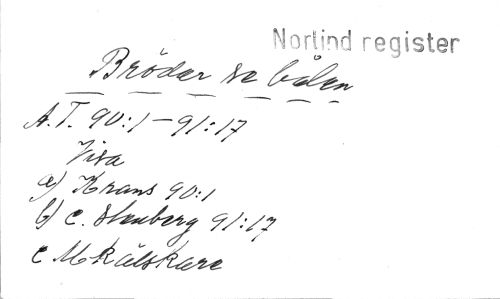 Norlind register
Bröder se bålen
A.T. 90:1 – 91:17
Visa
a) Krans 90:1
b) C. Stenberg 91:17
c Mkälskare